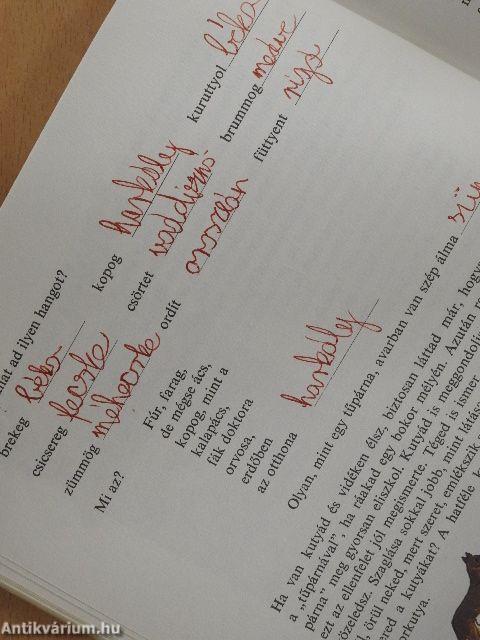 lat ad ilyen hangot?
brekeg béka kopog harkály kuruttyol béka
csicsereg fecske csörtet vaddisznó brummog medve
zümmög méhecske ordít oroszlán füttyent rigó
Mi az?
Fúr, farag,
de mégse ács,
kopog, mint a
kalapács,
fák doktora
orvosa,
erdőben
az otthona harkály
Olyan, mint egy tűpárna, avarban van szép álma sün
Ha van kutyád és vidéken élsz, biztosan láttad már, hogy
a „tűpárnával", ha ráakad egy bokor mélyén. Azután
párna" meg gyorsan eliszkol. Kutyád is meggondol
ezt az ellenfelet jól megismerte. Téged is ismer
zeledsz. Szaglása sokkal jobb, mint látás
, örül neked, mert szeret, emlékszik
ered a kutyákat? A hatféle
kutya.
Antikvárium.hu